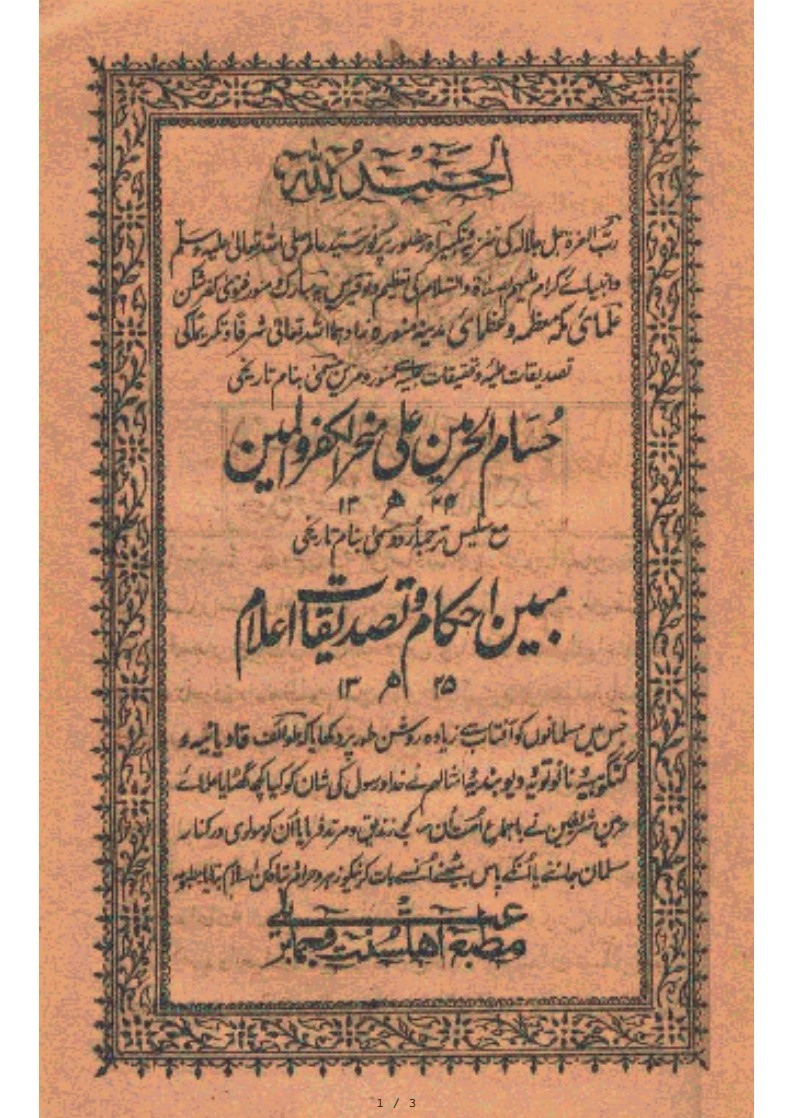 الحمد للہ
رب العزۃ جل جلالہ کی تنزیہ و تکبیر اور حضور پرنور سید عالم صلی اللہ تعالیٰ علیہ وسلم
و انبیائے کرام علیہم الصلاۃ والسلام کی تعظیم و توقیر میں مبارک و منور فتویٰ کفر شکن
علمائے مکہ معظمہ و عظمائے مدینہ منورہ زادہما اللہ تعالیٰ شرفا و تکریما کی
تصدیقات علیہ و تحقیقات جلیہ بنام تاریخی
حسام الحرمین علی منحر الکفر والمین
۱۳ ھ ۲۴
مع سلیس ترجمہ اردو مسمی بنام تاریخی
مبین احکام و تصدیقات اعلام
۱۳ ھ ۲۵
جس میں مسلمانوں کو آفتاب سے زیادہ روشن طور پر دکھایا کہ طوائف قادیانیہ و
گنگوہیہ و نانوتویہ و دیوبندیہ و امثالہم نے خدا و رسول کی شان کو کیا کچھ گھٹایا علمائے
حرمین شریفین نے باجماع امت ان سب کو زندیق و مرتد فرمایا ان کو مولوی درکنار
مسلمان جاننے یا انکے پاس بیٹھنے انسے بات کرنیکو زہر و حرام و تباہ کن اسلام بتایا
مطبع اہلسنت وجماعت
بریلی
1 / 3